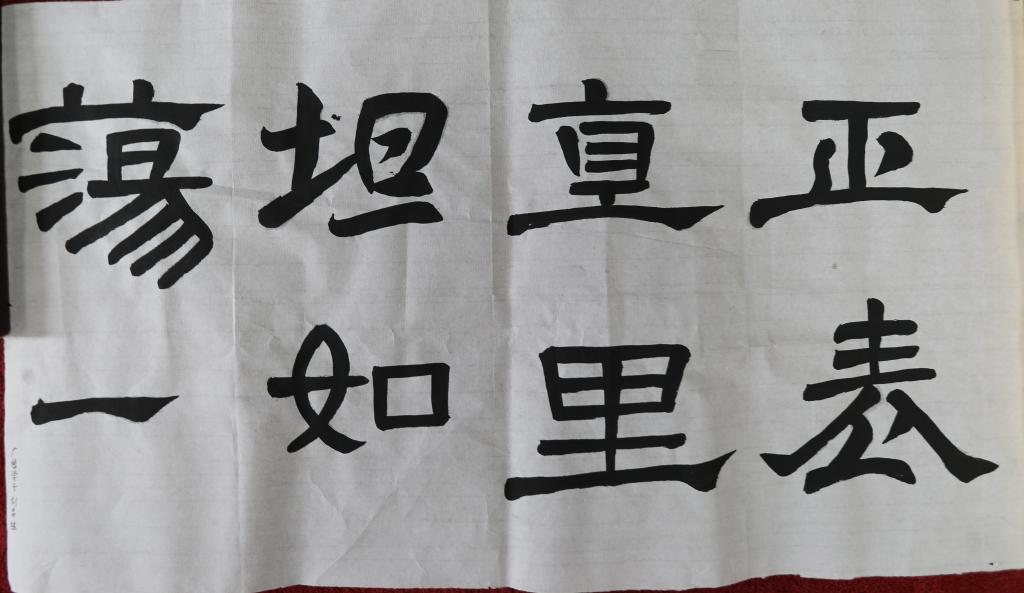 正直坦蕩
表里如一